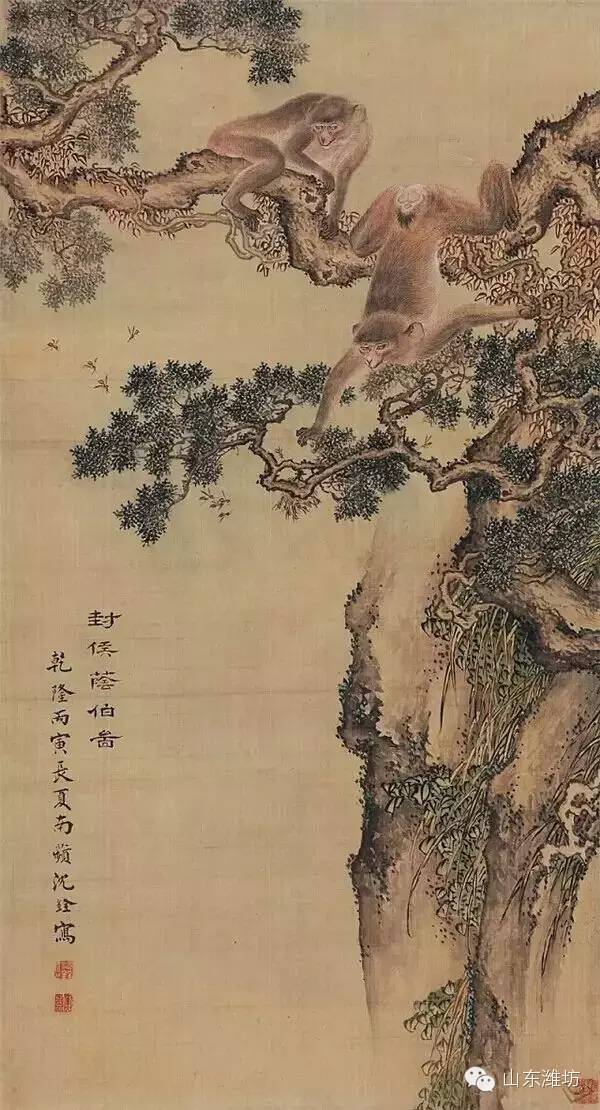 封侯蔭伯啚
乾隆丙寅長夏南蘋沈銓寫
山东潍坊